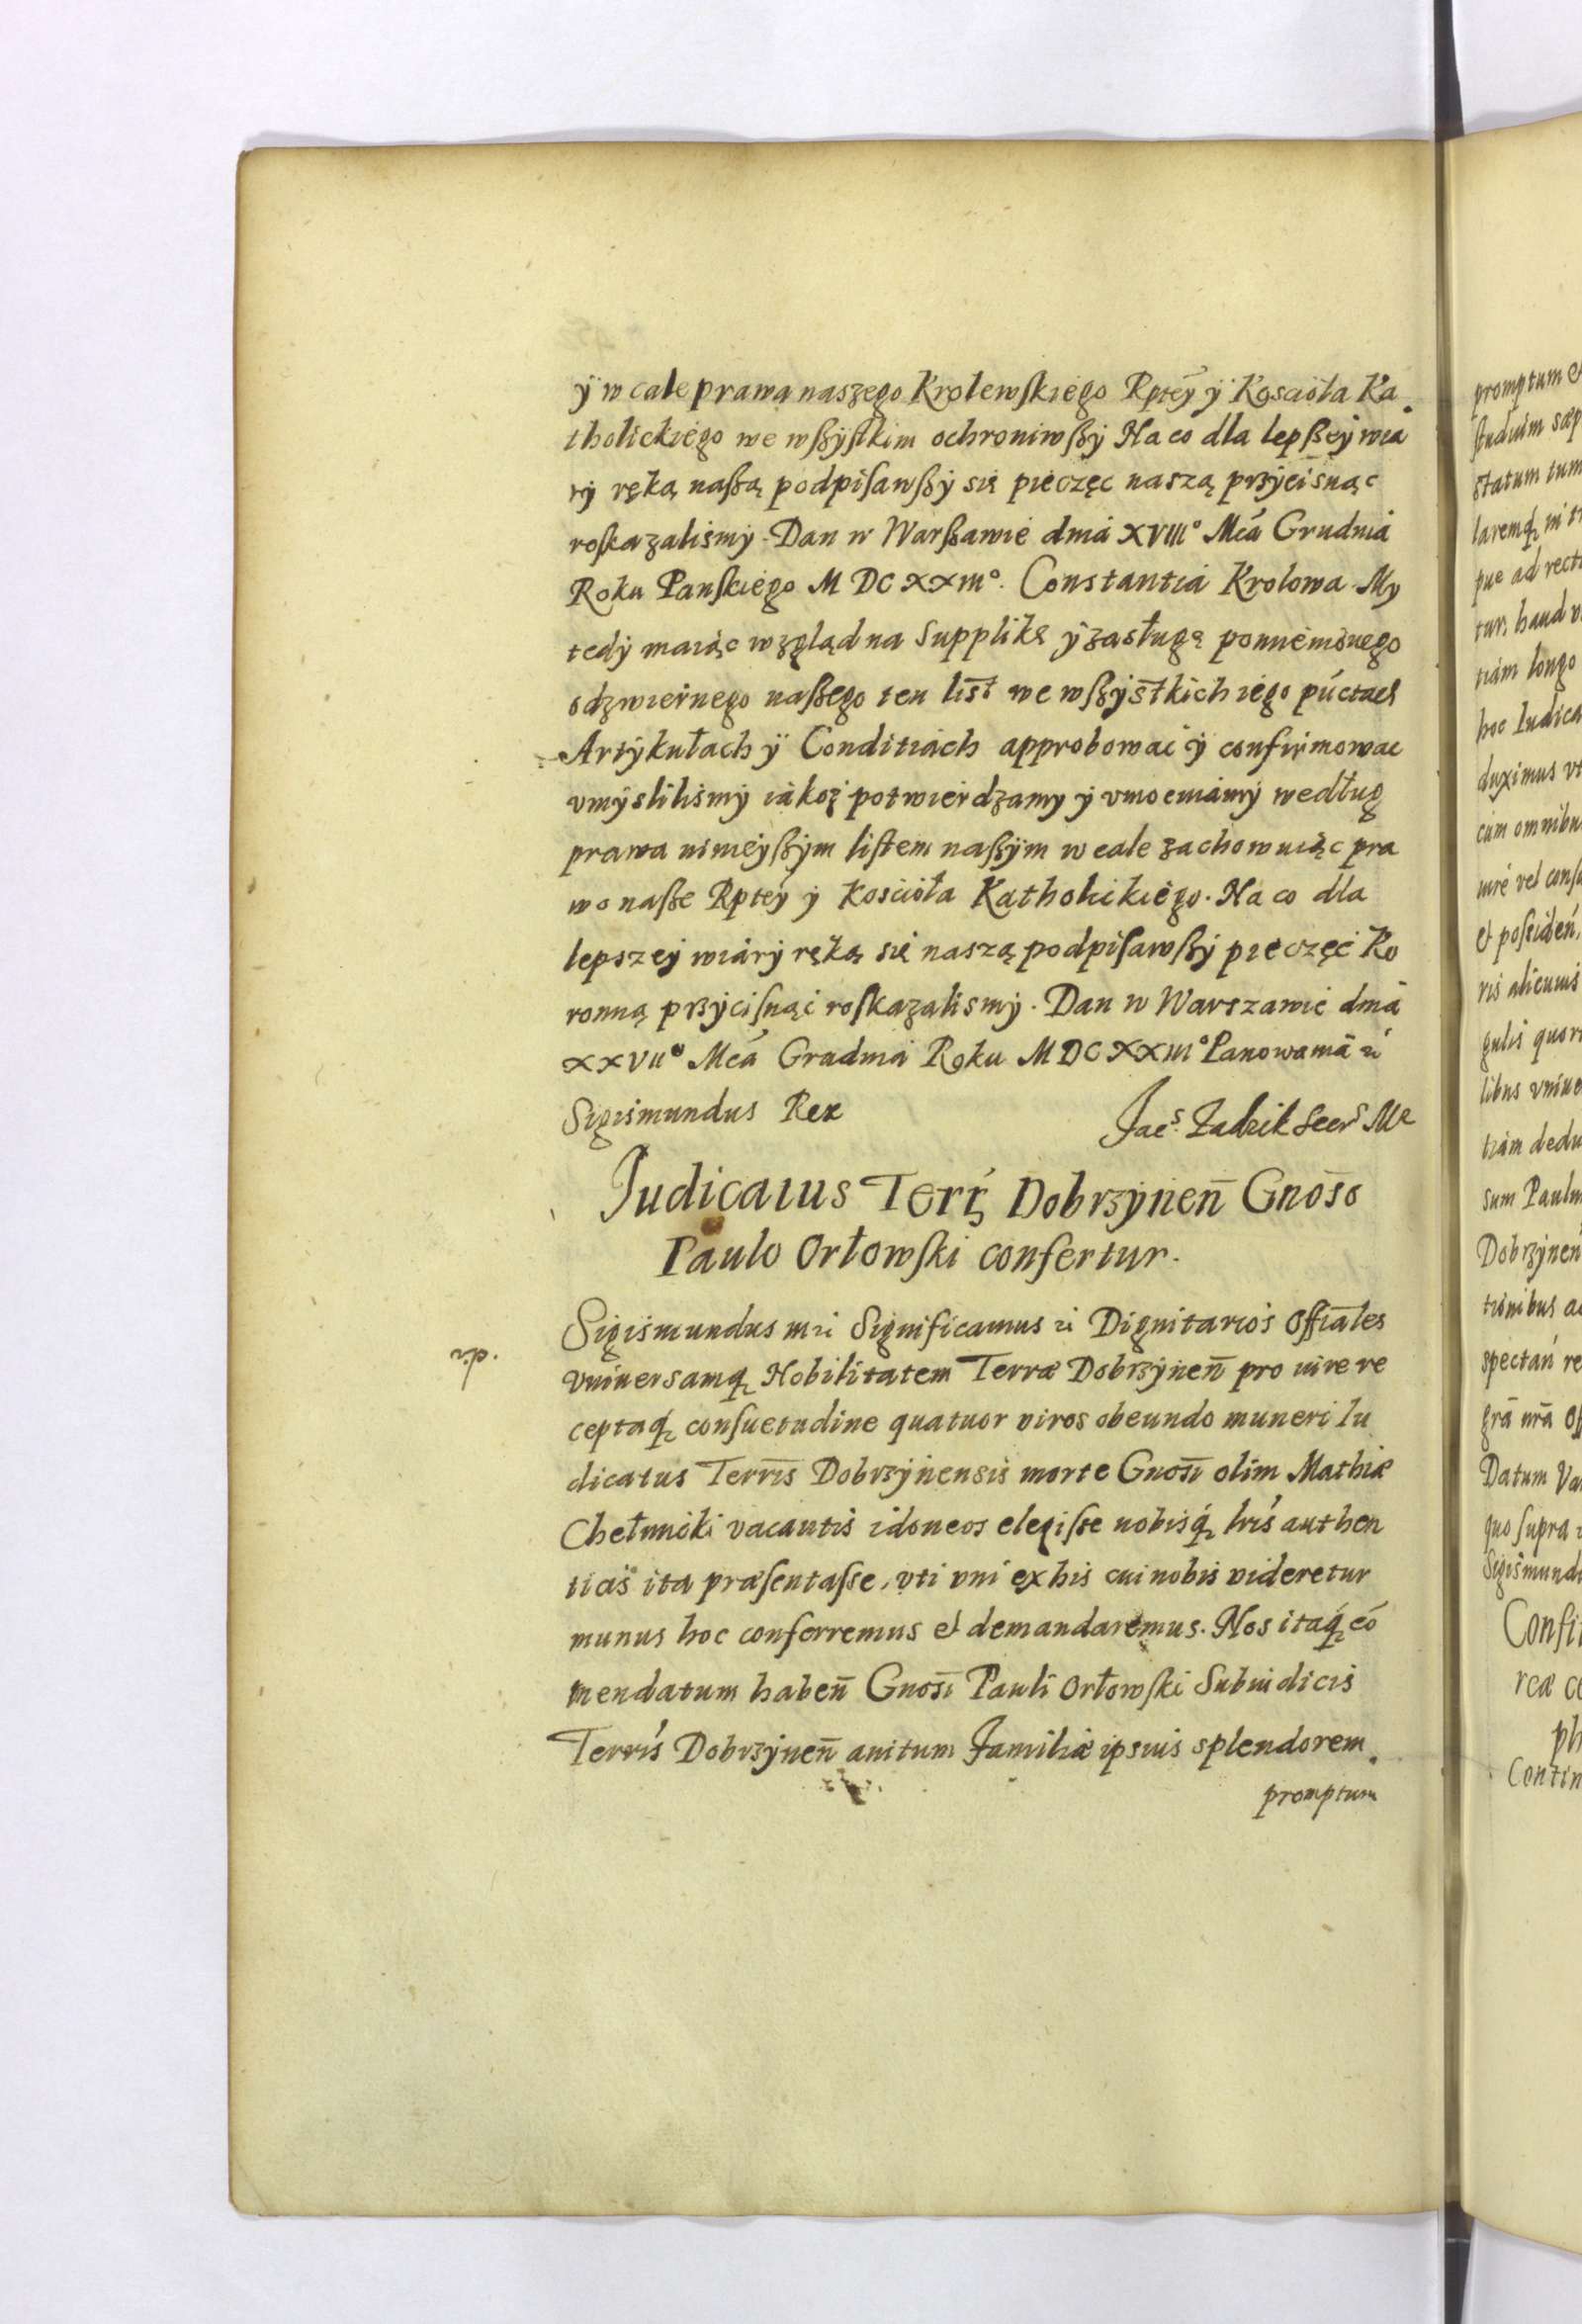 ÿ w cale prawa naszego Krolewskiego Rptéy ÿ Kosciola Ka
tholickiego we wßÿstkim ochroniwßÿ Na co dla lepßeÿ wia
rÿ ręką naßą podpisawßÿ się pieczęc naszą przÿcisnąc
roskazalismÿ. Dan w Warßawie dniá XVIII° Mcá Grudniá
Roku Panskiego M DC XXIII°. Constantia Krolowa My
tedÿ maiąc wzgląd na Supplikę ÿ zasługę pomienionego
odzwiernego naßego ten list we wßÿstkich iego púctach
Artÿkułach ÿ Conditiách approbowac ÿ confirmowac
vmÿslilismÿ iákoż potwierdzamy ÿ vmocniamÿ według
prawa ninieÿßÿm listem naßÿm w cale zachowuiąc pra
wo naße Rptey ÿ Kościoła Katholickiégo. Na co dla
lepszeÿ wiárÿ ręką się naszą podpisawßÿ pieczęć Ko
ronną przÿcisnąć roskazalismÿ. Dan w Warszawie dniá
XXVII° Mcá Grudniá Roku MDCXXIII° Panowaniá ŕ
Sigismundus Rex Jac.s Zadzik Secr.s Mr
Iudicatus Terŕ Dobrzÿnen̄ Gnōso
Paulo Orłowski confertur.
Sigismundus III ŕ Significamus ŕ Dignitarios Offīales
dŕ.
vniuersamq́ Nobilitatem Terræ Dobrzÿnen̄ pro iure re
ceptaq́ consuetudine quatuor viros obeundo muneri Iu
dicatus Terrīs Dobrzÿnensis morte Gnosī olim Mathiæ
Chełmicki vacantis idoneos elegisse nobisq́ lrīs authen
ticis ita præsentasse, vti vni ex his cui nobis videretur
munus hoc conferremus et demandaremus. Nos itaq́ cō
mendatum haben̄ Gnosī Pauli Orłowski Subiudicis
Terrīs Dobrzÿnen̄ auitum Familiæ ipsius splendorem
promptum
promptum e
studium sæp
statum tum
laremq́ in t
pue ad rect
tur, haud v
tiam longo
hoc Iudica
duximus vt
cum omnibu
iure vel cons
et possiden̄,
ris alicuius
gulis quor
libus vniue
tiam dedu
sum Paulu
Dobrzÿnen
tionibus a
spectan̄ re
grā nrā of
Datum Va
quo supra
Sigismund
Confi
reæ c
ph
Contin